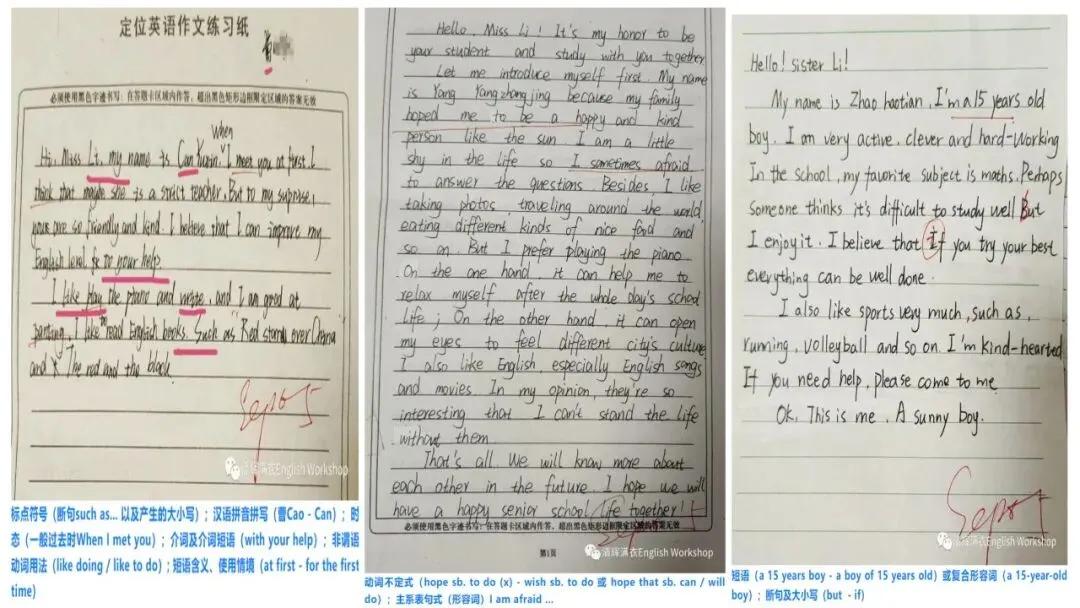 定位英语作文练习纸
曹
必须使用黑色字迹书写;在答题卡区域内作答,超出黑色矩形边框限定区域的答案无效
When
Hi, Miss Li, my name is Can Yuxin. I meet you at first. I
think that maybe she is a strict teacher. But to my suprise,
your are so friendly and kind. I believe that I can improve my
English level to your help.
I like play the piano and write, and I am good at
panting. I like to read English books. Such as "Red starts over China"
and The red and the black.
Sep 5
清辉满衣English Workshop
标点符号(断句such as... 以及产生的大小写);汉语拼音拼写(曹Cao - Can);时
态(一般过去时When I met you);介词及介词短语(with your help);非谓语
动词用法(like doing / like to do);短语含义、使用情境(at first - for the first
time)
Hello, Miss Li! It's my honor to be
your student and study with you together.
Let me introduce myself first. My name
is Yang Yangzhongjing because my family
hoped me to be a happy and kind
person like the sun. I am a little
shy in the life so I sometimes afraid
to answer the questions. Besides, I like
taking photos, traveling around the world,
eating different kinds of nice food and
so on. But I prefer playing the piano.
On the one hand, it can help me to
relax myself after the whole day's school
life; On the other hand, it can open
my eyes to feel different city's culture.
I also like English, especially English songs
and movies. In my opinion, they're so
interesting that I can't stand the life
without them.
That's all. We will know more about
each other in the future. I hope we will
have a happy senior school life together!
必须使用黑色字迹书写;在答题卡区域内作答,超出黑色矩形边框限定区域的答案无效
第1页
清辉满衣English Workshop
动词不定式(hope sb. to do (x) - wish sb. to do 或 hope that sb. can / will
do);主系表句式(形容词)I am afraid ...
Hello! Sister Li!
My name is Zhao haotian, I'm a 15 years old
boy. I am very active, clever and hard-working
In the school, my favorite subject is maths. Perhaps
someone thinks it's difficult to study well But
I enjoy it. I believe that If you try your best
everything can be well done.
I also like sports very much, such as,
running, volleyball and so on. I'm kind-hearted
If you need help, please come to me
Ok. This is me. A sunny boy.
Sep 5
清辉满衣English Workshop
短语(a 15 years boy - a boy of 15 years old)或复合形容词(a 15-year-old
boy);断句及大小写(but - if)